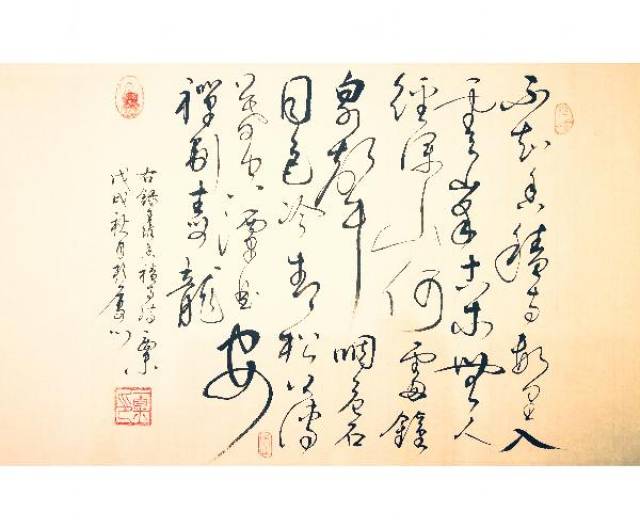 不知香積寺數里入
雲峰古木無人
徑深山何處鐘
泉聲咽危石
日色冷青松薄
暮空潭曲安
禪制毒龍
右録王維香積寺詩
戊戌秋月於廈門